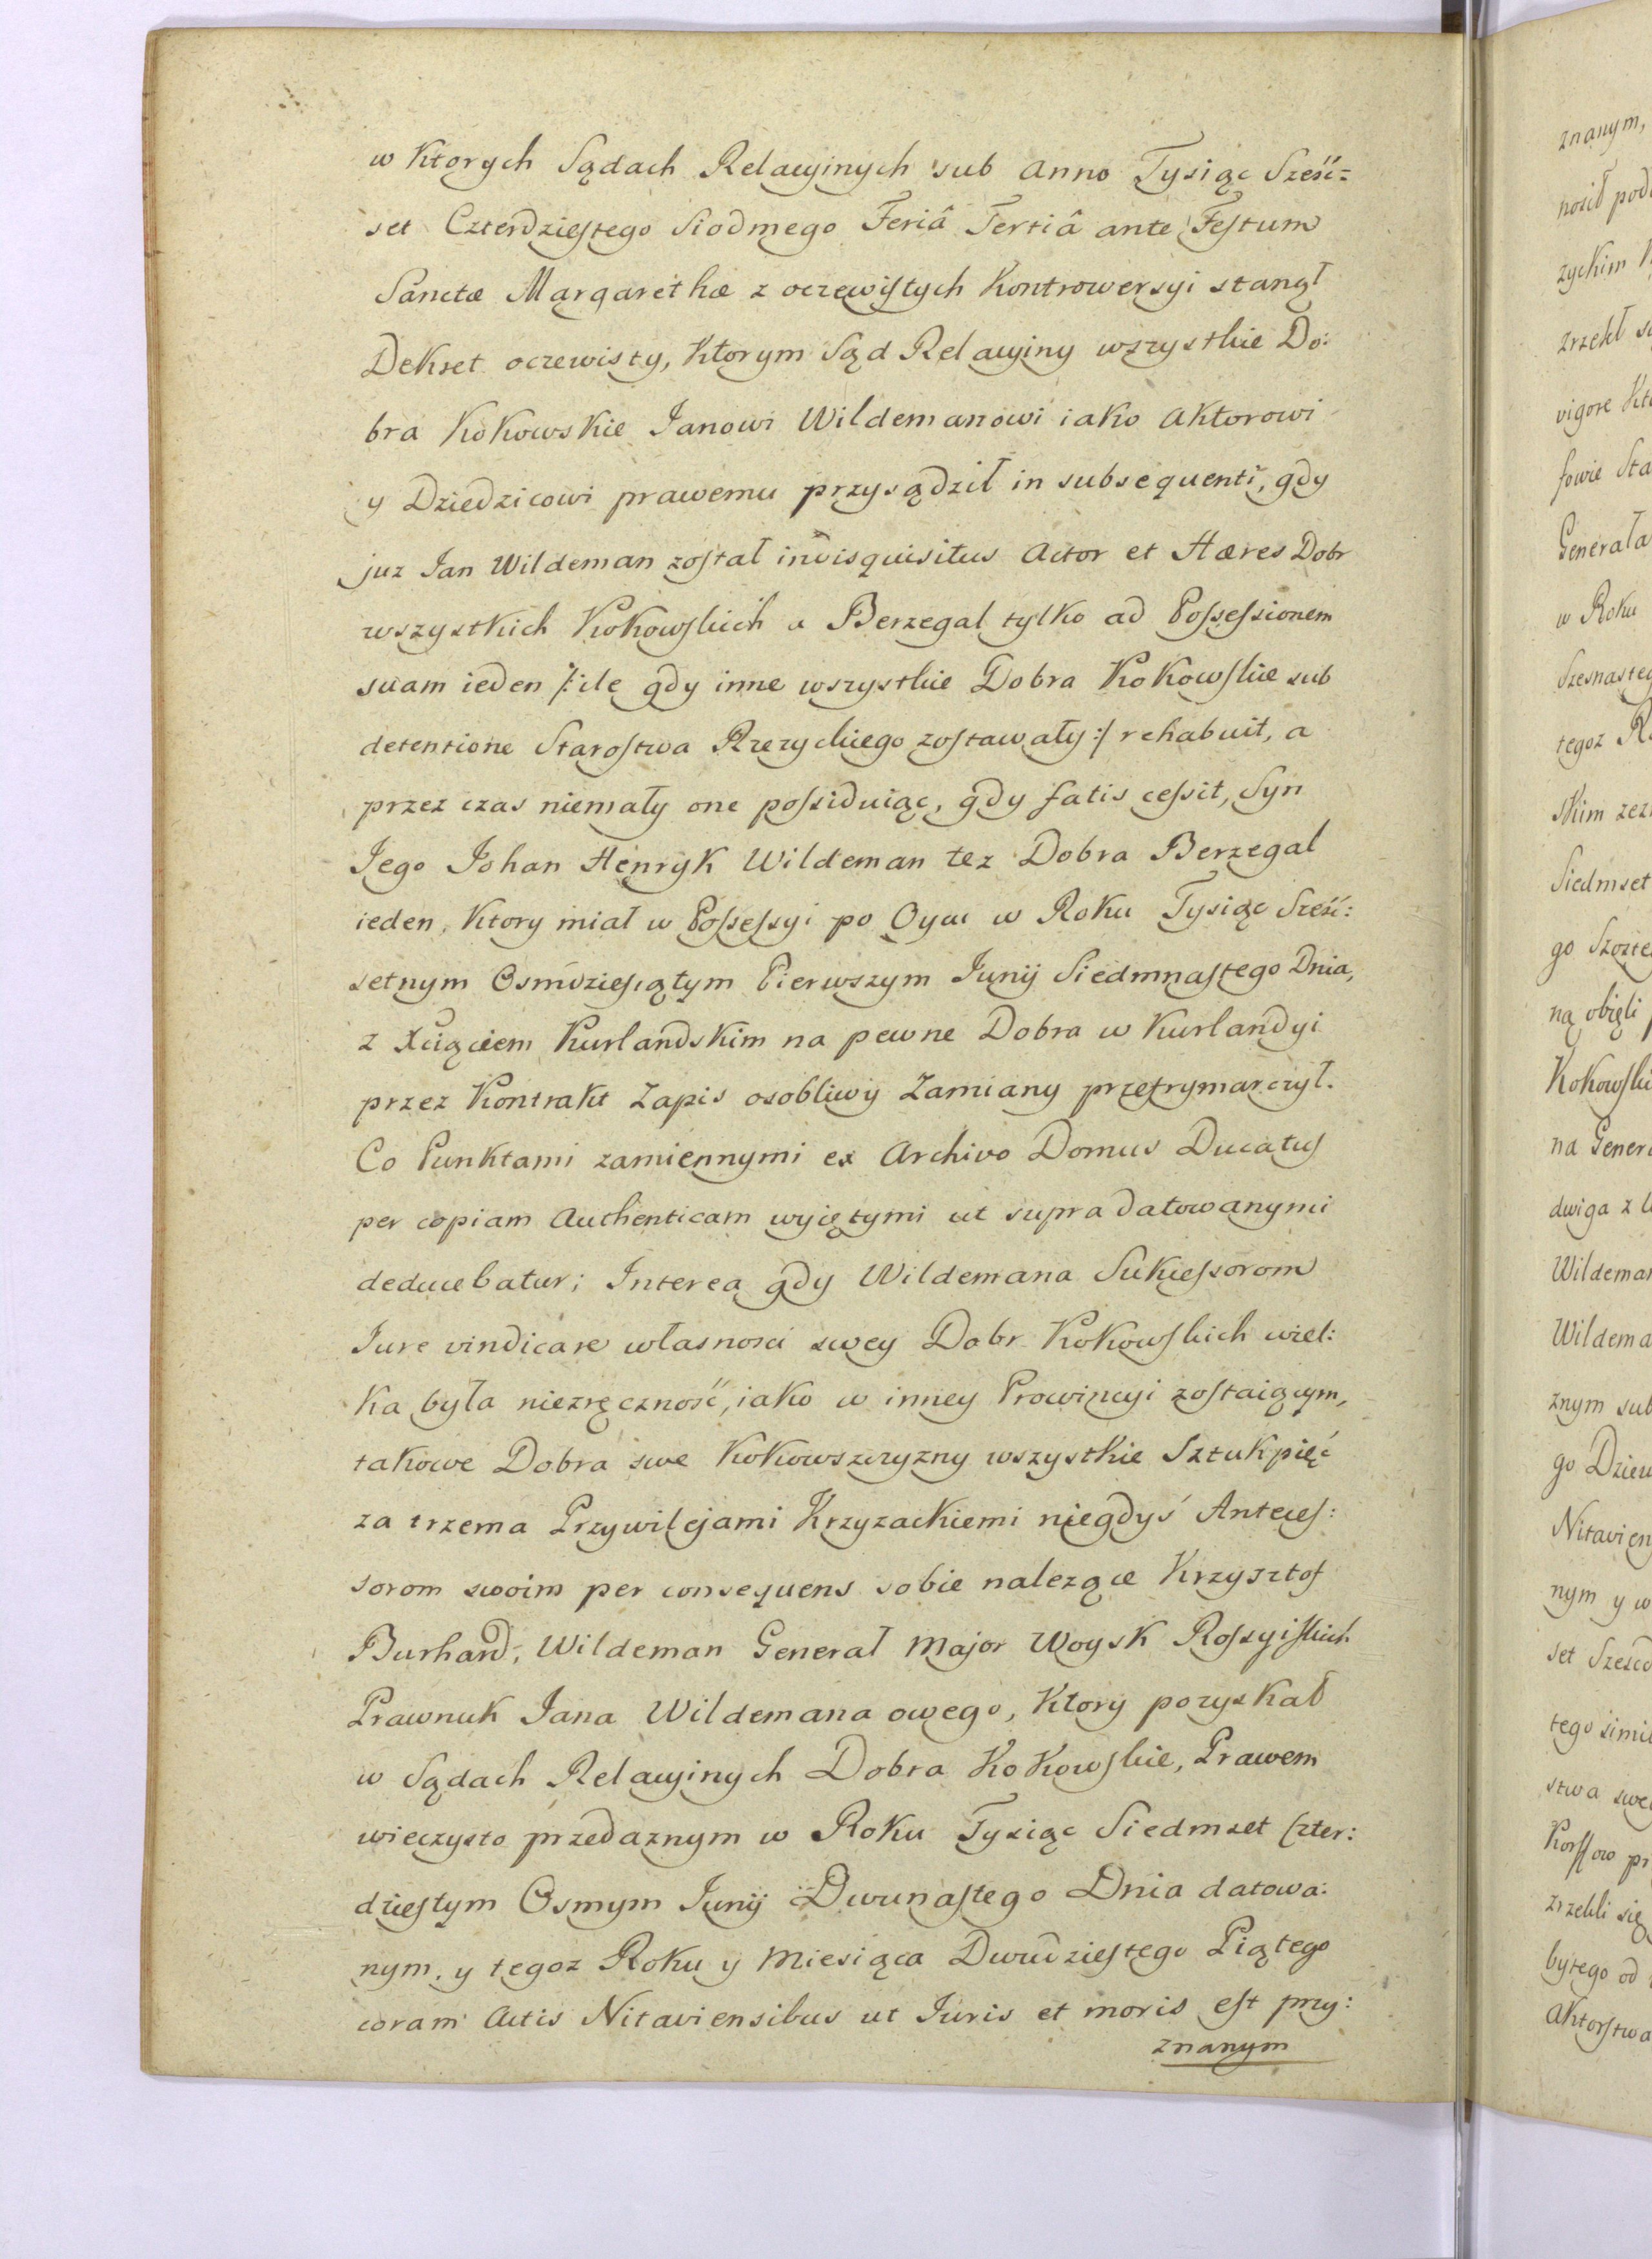 w Ktorych Sądach Relacyinych sub Anno Tysiąc Sześć=
set Czterdziestego Siodmego Feriâ Tertiâ ante Festum
Sanctæ Margarethæ z oczewistych Kontrowersyi stanął
Dekret oczewisty, Ktorym Sąd Relacyiny wszystkie Do:
bra Kokowskie Janowi Wildemanowi iako Aktorowi
y Dziedzicowi prawemu przysądził in subsequenti, gdy
juz Jan Wildeman został indisquisitus Actor et Hæres Dobr
wszystkich Kokowskich a Berzegal tylko ad Possessionem
suam ieden /: ile gdy inne wszystkie Dobra Kokowskie sub
detentione Starostwa Rzezyckiego zostawały :/ rehabuit, a
przez czas niemały one possiduiąc, gdy fatis cessit, Syn
Jego Johan Henryk Wildeman tez Dobra Berzegal
ieden, Ktory miał w Possessyi po Oycu w Roku Tysiąc Sześć:
setnym Osmdziesiątym Pierwszym Junij Siedmnastego Dnia,
z Xciąciem Kurlandskim na pewne Dobra w Kurlandyi
przez Kontrakt Zapis osobliwy Zamiany przefrymarczył.
Co Punktami zamiennymi ex Archivo Domus Ducatus
per copiam Authenticam wyiętymi ut supra datowanymi
deducebatur; Interea gdy Wildemana Sukcessorom
Jure vindicare własnosci swey Dobr Kokowskich wiel:
Ka była niezręczność, iako w inney Prowincyi zostaiącym,
takowe Dobra swe Kokowszczyzny wszystkie Sztuk pięć
za trzema Przywilejami Krzyzackiemi niegdyś Anteces:
sorom swoim per consequens sobie nalezące Krzysztof
Burhard, Wildeman Generał Major Woysk Rossyiskich
Prawnuk Jana Wildemana owego, Ktory pozyskał
w Sądach Relacyinych Dobra Kokowskie, Prawem
wieczysto przedaznym w Roku Tysiąc Siedmset Czter:
dziestym Osmym Junij Dwunastego Dnia datowa:
nym, y tegoz Roku y Miesiąca Dwudziestego Piątego
coram Actis Nitaviensibus ut Juris et moris est przy:
znanym
znanym,
nosił pod
zyckim
zrzekł
vigore
fowie Sta
Generała
w Roku
Szesnasteg
tegoz
skim
Siedmset
go
ną obięli
Kokowski
na Gener
dwiga z
Wildeman
Wildema
znym sub
go
Nitavien
nym y w
set
tego
stwa swe
Korffow
zrzekli się
bytego od
Aktorstwa